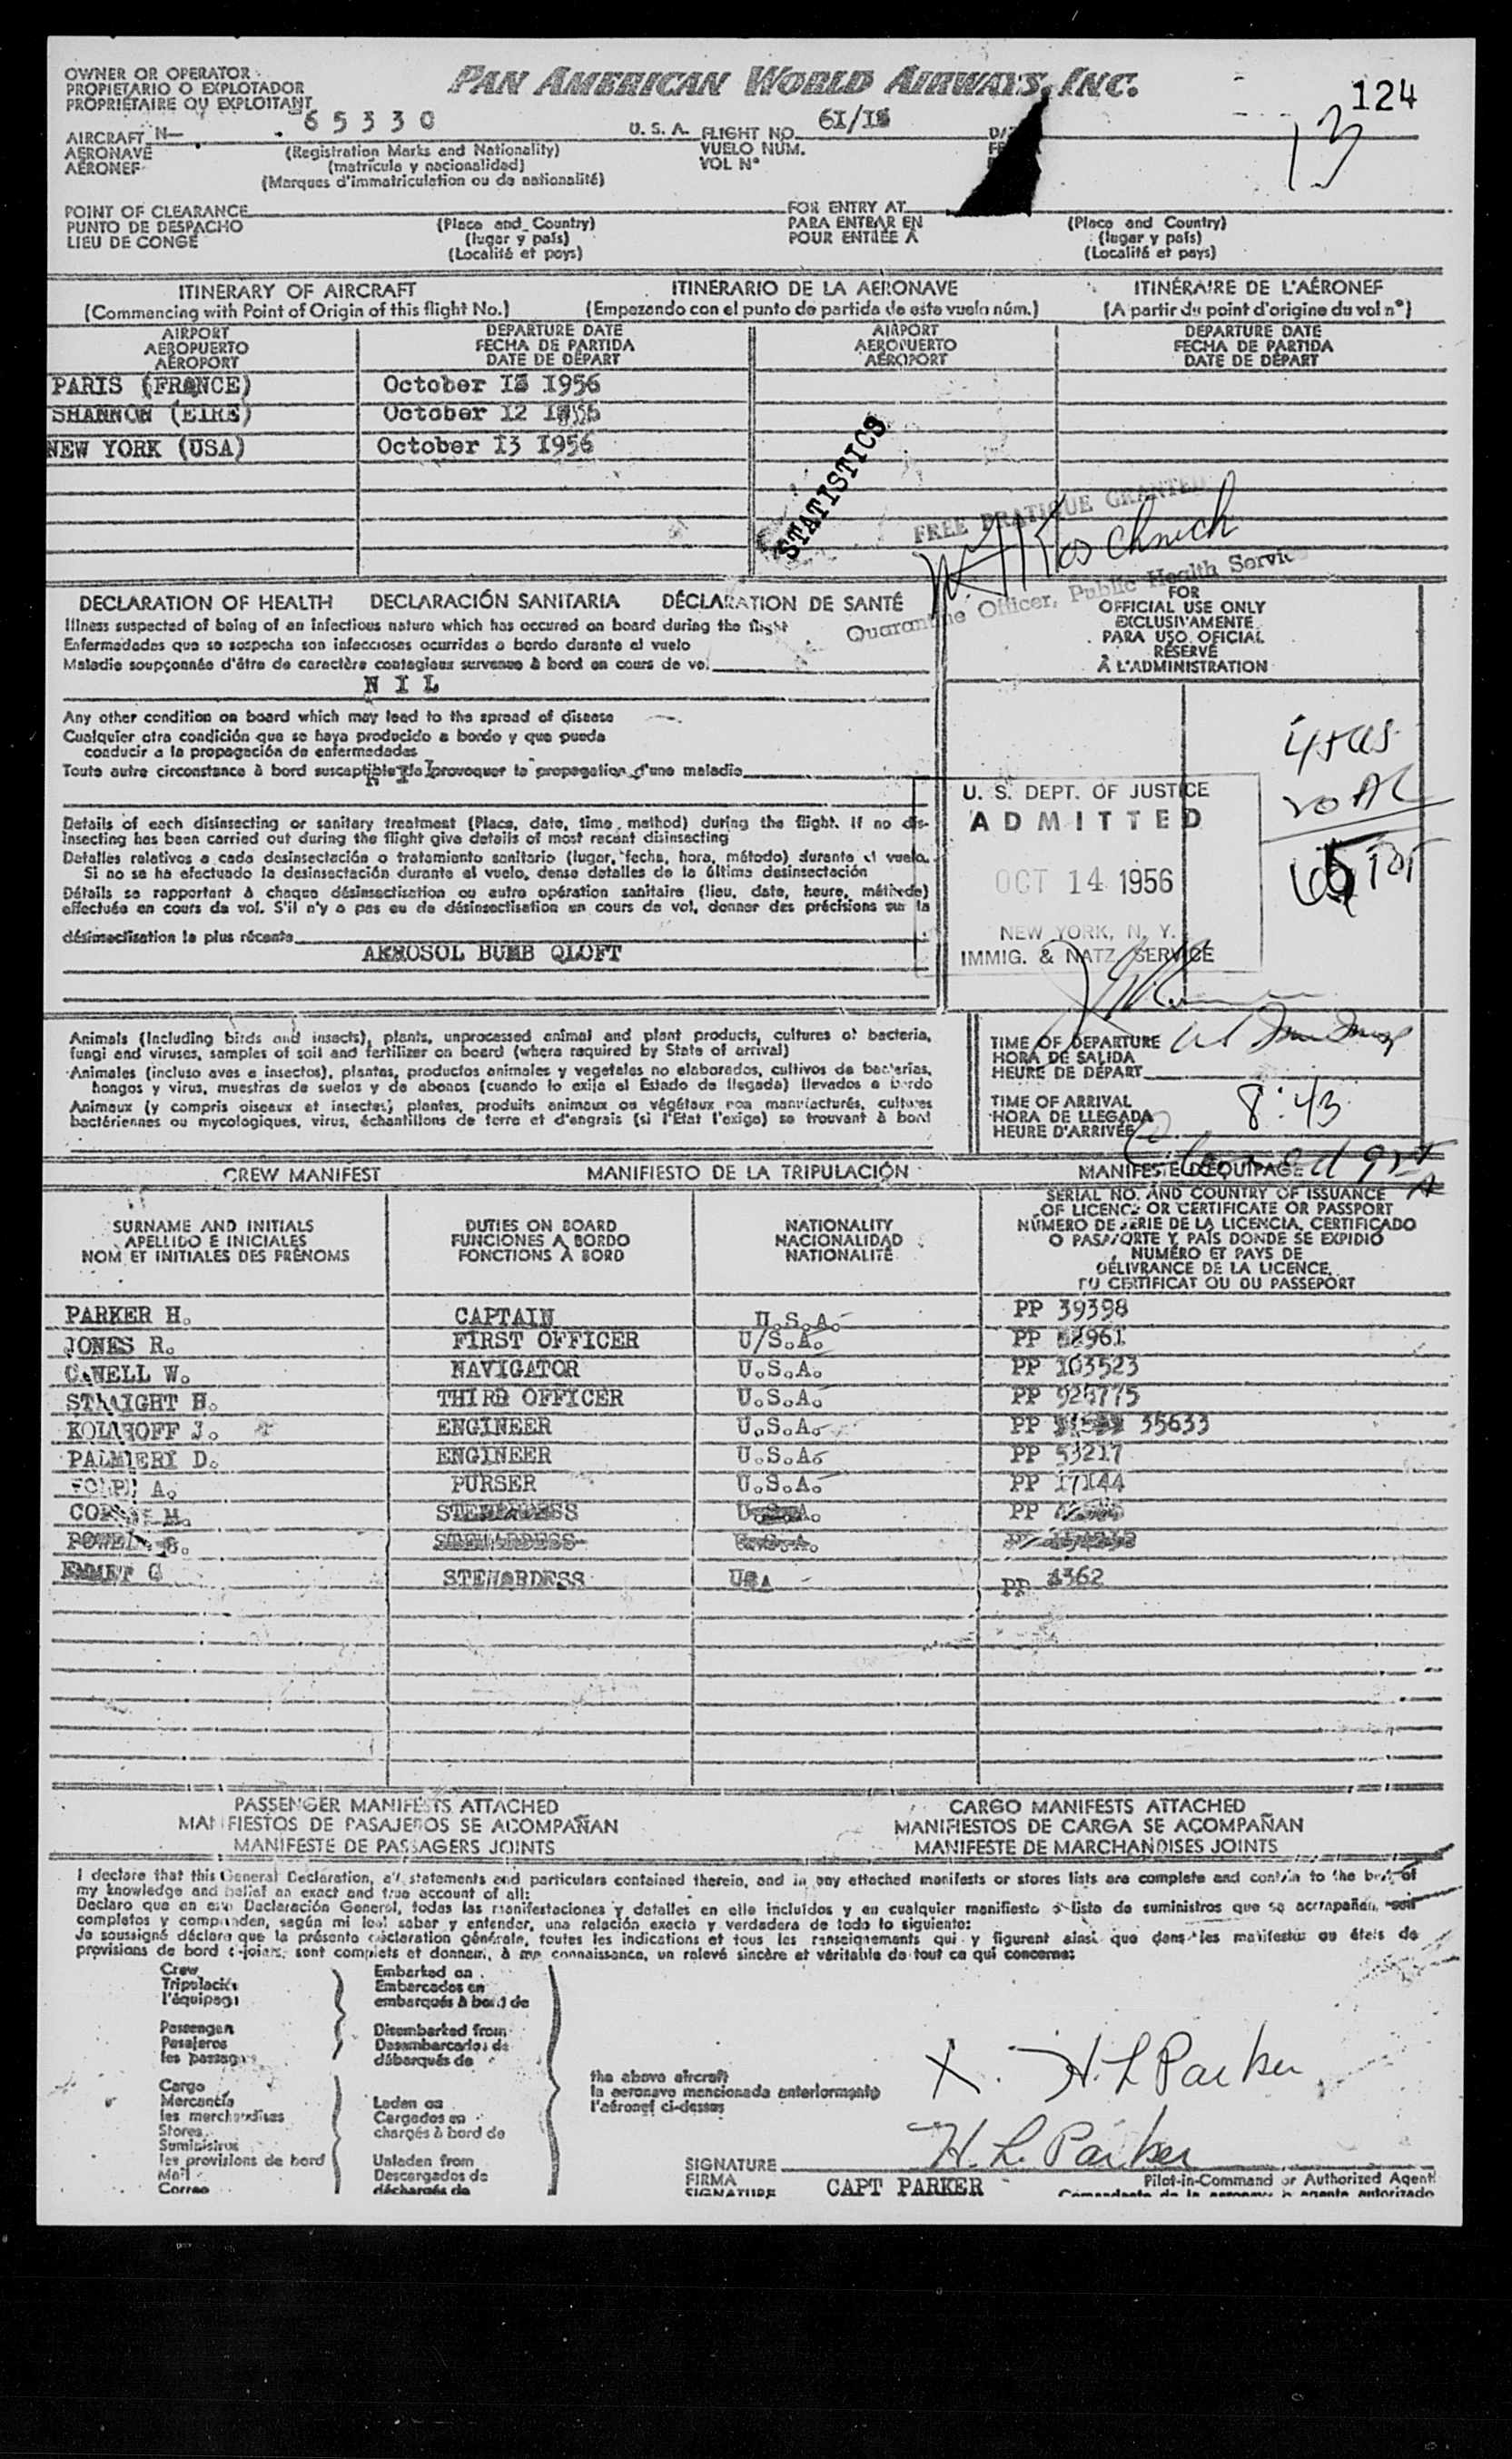 OWNER OR OPERATOR
PROPIETARIO O EXPLOTADOR
PROPRIÉTAIRE OU EXPLOITANT
PAN AMERICAN WORLD AIRWAYS, INC.
124
13
AIRCRAFT N— 65330 U. S. A. FLIGHT NO.
AERONAVE (Registration Marks and Nationality) VUELO NÚM.
AÉRONEF (matrícula y nacionalidad) VOL N°
(Marques d'immatriculation ou de nationalité)
POINT OF CLEARANCE FOR ENTRY AT
PUNTO DE DESPACHO (Place and Country) PARA ENTRAR EN (Place and Country)
LIEU DE CONGÉ (lugar y país) POUR ENTRÉE À (lugar y país)
(Localité et pays) (Localité et pays)
ITINERARY OF AIRCRAFT ITINERARIO DE LA AERONAVE ITINÉRAIRE DE L'AÉRONEF
(Commencing with Point of Origin of this flight No.) (Empezando con el punto de partida de este vuelo núm.) (A partir du point d'origine du vol n°)
AIRPORT DEPARTURE DATE AIRPORT DEPARTURE DATE
AEROPUERTO FECHA DE PARTIDA AEROPUERTO FECHA DE PARTIDA
AÉROPORT DATE DE DÉPART AÉROPORT DATE DE DÉPART
PARIS (FRANCE) October 1956
SHANNON (EIRE) October 12
NEW YORK (USA) October 13 1956
STATISTICS
FREE PRATIQUE GRANTED
Quarantine Officer, Public Health Service
DECLARATION OF HEALTH DECLARACIÓN SANITARIA DÉCLARATION DE SANTÉ
Illness suspected of being of an infectious nature which has occured on board during the flight
Enfermedades que se sospecha son infecciosas ocurridas a bordo durante el vuelo
Maladie soupçonnée d'être de caractère contagieux survenue à bord en cours de vol
N I L
FOR
OFFICIAL USE ONLY
EXCLUSIVAMENTE
PARA USO OFICIAL
RÉSERVÉ
À L'ADMINISTRATION
Any other condition on board which may lead to the spread of disease
Cualquier otra condición que se haya producido a bordo y que pueda
conducir a la propagación de enfermedades
Toute autre circonstance à bord susceptible de provoquer la propagation d'une maladie
Details of each disinsecting or sanitary treatment (Place, date, time, method) during the flight. If no dis-
insecting has been carried out during the flight give details of most recent disinsecting
Detalles relativos a cada desinsectación o tratamiento sanitario (lugar, fecha, hora, método) durante el vuelo.
Si no se ha efectuado la desinsectación durante el vuelo, dense detalles de la última desinsectación
Détails se rapportant à chaque désinsectisation ou autre opération sanitaire (lieu, date, heure, méthode)
effectuée en cours de vol. S'il n'y a pas eu de désinsectisation en cours de vol, donner des précisions sur la
désinsectisation la plus récente
AEROSOL BUMB QLOFT
U. S. DEPT. OF JUSTICE
ADMITTED
OCT 14 1956
NEW YORK, N. Y.
IMMIG. & NATZ. SERVICE
Animals (including birds and insects), plants, unprocessed animal and plant products, cultures of bacteria,
fungi and viruses, samples of soil and fertilizer on board (where required by State of arrival)
Animales (incluso aves e insectos), plantas, productos animales y vegetales no elaborados, cultivos de bacterias,
hongos y virus, muestras de suelos y de abonos (cuando lo exija el Estado de llegada) llevados a bordo
Animaux (y compris oiseaux et insectes) plantes, produits animaux ou végétaux non manufacturés, cultures
bactériennes ou mycologiques, virus, échantillons de terre et d'engrais (si l'Etat l'exige) se trouvant à bord
TIME OF DEPARTURE
HORA DE SALIDA
HEURE DE DÉPART
TIME OF ARRIVAL
HORA DE LLEGADA
HEURE D'ARRIVÉE
8:43
CREW MANIFEST MANIFIESTO DE LA TRIPULACIÓN MANIFESTE D'ÉQUIPAGE
SURNAME AND INITIALS
APELLIDO E INICIALES
NOM ET INITIALES DES PRÉNOMS
DUTIES ON BOARD
FUNCIONES A BORDO
FONCTIONS À BORD
NATIONALITY
NACIONALIDAD
NATIONALITÉ
SERIAL NO. AND COUNTRY OF ISSUANCE
OF LICENCE OR CERTIFICATE OR PASSPORT
NÚMERO DE SERIE DE LA LICENCIA, CERTIFICADO
O PASAPORTE Y PAÍS DONDE SE EXPIDIÓ
NUMÉRO ET PAYS DE
DÉLIVRANCE DE LA LICENCE,
DU CERTIFICAT OU DU PASSEPORT
PARKER H. CAPTAIN U.S.A. PP 39398
JONES R. FIRST OFFICER U/S.A. PP
W. NAVIGATOR U.S.A. PP 103523
STRAIGHT H. THIRD OFFICER U.S.A. PP
J. ENGINEER U.S.A. PP 35633
PALMIERI D. ENGINEER U.S.A. PP 53217
A. PURSER U.S.A. PP 17144
M. STEWARDESS U.S.A. PP
STEWARDESS U.S.A.
EMMET G STEWARDESS USA PP
PASSENGER MANIFESTS ATTACHED CARGO MANIFESTS ATTACHED
MANIFIESTOS DE PASAJEROS SE ACOMPAÑAN MANIFIESTOS DE CARGA SE ACOMPAÑAN
MANIFESTE DE PASSAGERS JOINTS MANIFESTE DE MARCHANDISES JOINTS
I declare that this General Declaration, all statements and particulars contained therein, and in any attached manifests or stores lists are complete and contain to the best of
my knowledge and belief an exact and true account of all:
Declaro que en esta Declaración General, todas las manifestaciones y detalles en ella incluídos y en cualquier manifiesto o lista de suministros que se acompañan, son
completos y comprenden, según mi leal saber y entender, una relación exacta y verdadera de todo lo siguiente:
Je soussigné déclare que la présente déclaration générale, toutes les indications et tous les renseignements qui y figurent ainsi que dans les manifestes ou états de
provisions de bord ci-joints, sont complets et donnent, à ma connaissance, un relevé sincère et véritable de tout ce qui concerne:
Crew
Tripulación
l'équipage
Embarked on
Embarcados en
embarqués à bord de
Passengers
Pasajeros
les passagers
Disembarked from
Desembarcados de
débarqués de
Cargo
Mercancía
les merchandises
Stores
Suministros
les provisions de bord
Mail
Correo
Laden on
Cargados en
chargés à bord de
Unladen from
Descargados de
déchargés de
the above aircraft
la aeronave mencionada anteriormente
l'aéronef ci-dessus
X. H. L Parker
H. L. Parker
SIGNATURE
FIRMA
SIGNATURE
CAPT PARKER
Pilot-in-Command or Authorized Agent
Comandante de la aeronave o agente autorizado